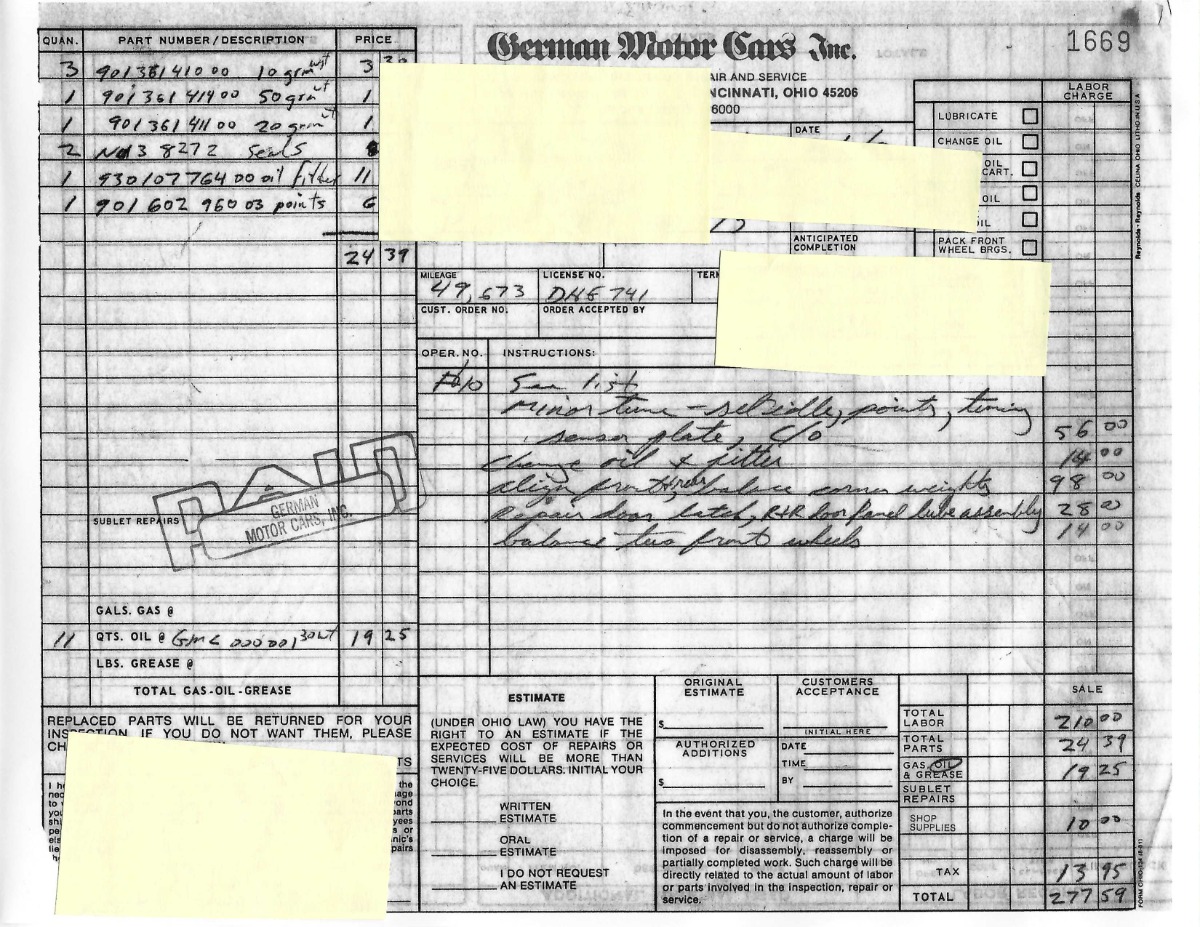 German Motor Cars Inc.
1669
AIR AND SERVICE
NCINNATI, OHIO 45206
6000
QUAN. PART NUMBER/DESCRIPTION PRICE
3 901 361 410 00 10 grm wt 3
1 901 361 414 00 50 grm wt 1
1 901 361 411 00 20 grm wt 1
2 8272 seals
1 930 107 764 00 oil filter 11
1 901 602 960 03 points 6
24 39
SUBLET REPAIRS
PAID
GERMAN
MOTOR CARS, INC.
GALS. GAS @
11 QTS. OIL @ GMC 000001 30wt 19 25
LBS. GREASE @
TOTAL GAS-OIL-GREASE
DATE
ANTICIPATED
COMPLETION
LABOR
CHARGE
LUBRICATE
CHANGE OIL
OIL
CART.
OIL
OIL
PACK FRONT
WHEEL BRGS.
MILEAGE LICENSE NO. TER
49,673 741
CUST. ORDER NO. ORDER ACCEPTED BY
OPER. NO. INSTRUCTIONS:
See list
minor tune - set idle, points, timing
sensor plate, c/o 56 00
change oil & filter 14 00
align front, rear, balance corner weights 98 00
repair door latch, R&R door panel lube assembly 28 00
balance two front wheels 14 00
REPLACED PARTS WILL BE RETURNED FOR YOUR
INSPECTION. IF YOU DO NOT WANT THEM, PLEASE
CH
TS
ESTIMATE
(UNDER OHIO LAW) YOU HAVE THE
RIGHT TO AN ESTIMATE IF THE
EXPECTED COST OF REPAIRS OR
SERVICES WILL BE MORE THAN
TWENTY-FIVE DOLLARS. INITIAL YOUR
CHOICE.
WRITTEN
ESTIMATE
ORAL
ESTIMATE
I DO NOT REQUEST
AN ESTIMATE
ORIGINAL
ESTIMATE
$
AUTHORIZED
ADDITIONS
$
CUSTOMERS
ACCEPTANCE
INITIAL HERE
DATE
TIME
BY
In the event that you, the customer, authorize
commencement but do not authorize comple-
tion of a repair or service, a charge will be
imposed for disassembly, reassembly or
partially completed work. Such charge will be
directly related to the actual amount of labor
or parts involved in the inspection, repair or
service.
SALE
TOTAL
LABOR 210 00
TOTAL
PARTS 24 39
GAS, OIL
& GREASE 19 25
SUBLET
REPAIRS
SHOP
SUPPLIES 10 00
TAX 13 95
TOTAL 277 59